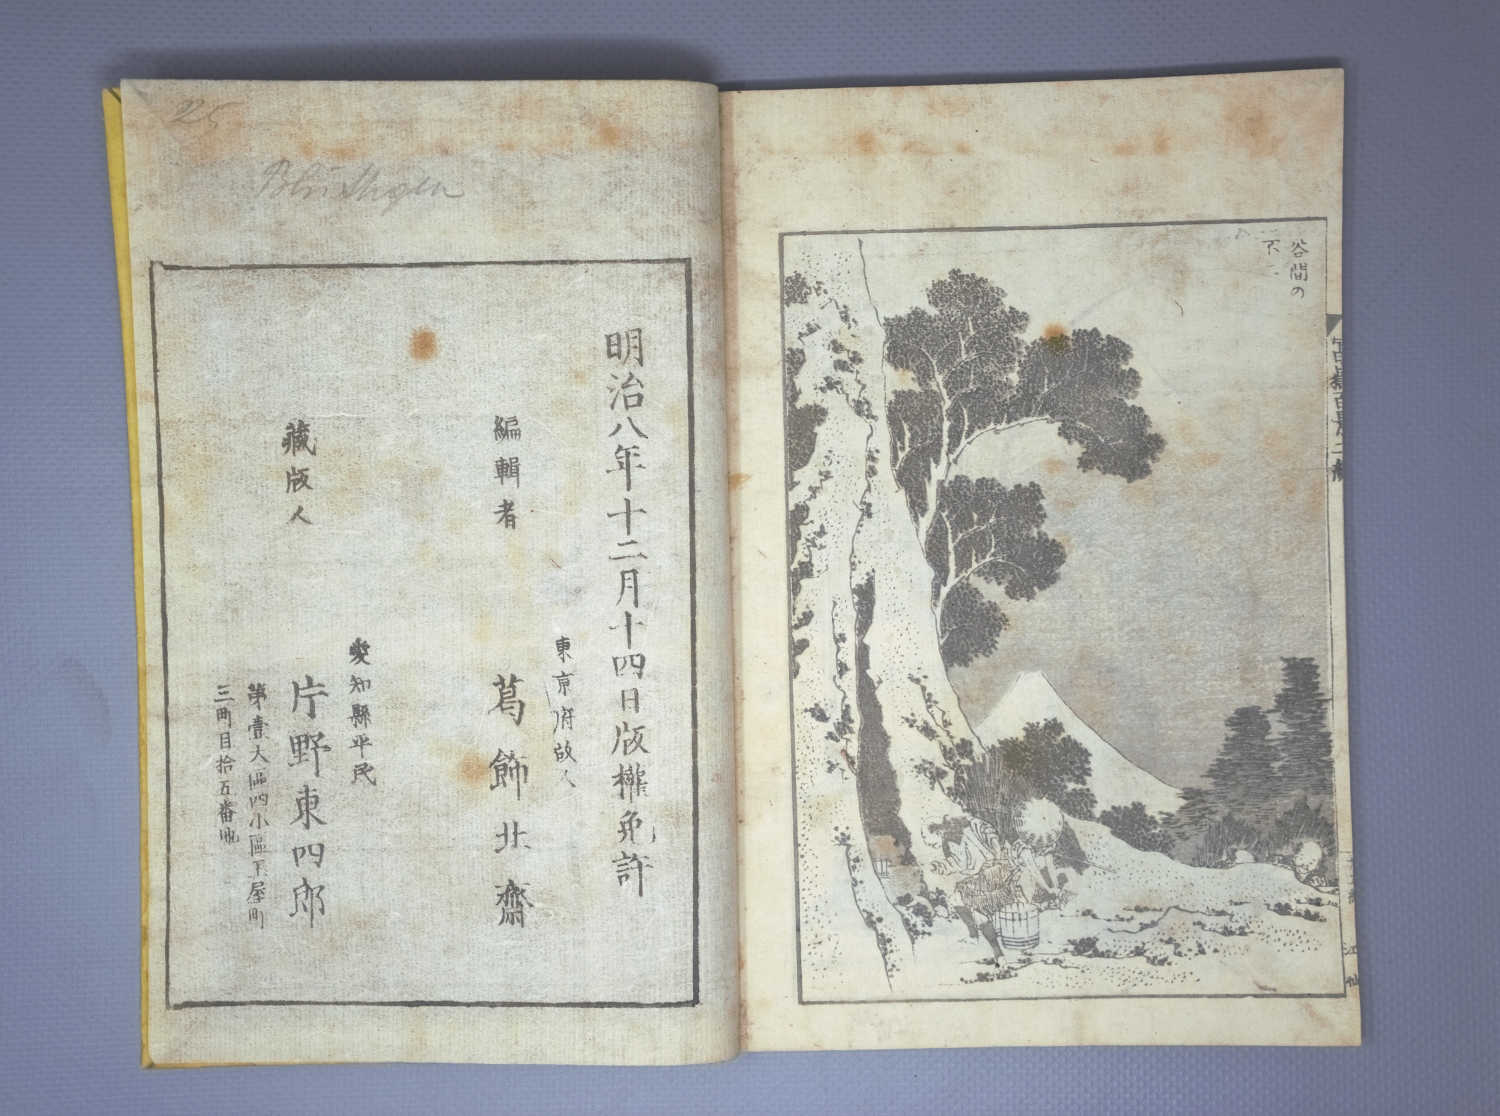 谷間の
不二
明治八年十二月十四日版權免許
東京府故人
編輯者 葛飾北齋
愛知縣平民
藏版人 片野東四郎
第壹大區四小區玉屋町
三町目拾五番地
25